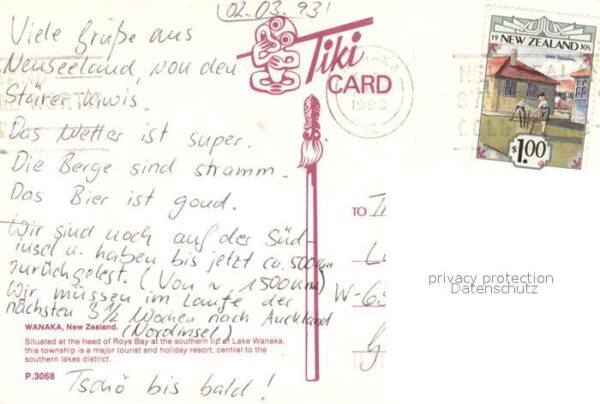 (02.03.93)
Viele Grüße aus
Neuseeland, von den
Stürer Kiwis.
Das Wetter ist super.
Die Berge sind stramm.
Das Bier ist goud.
Wir sind noch auf der Süd-
insel u. haben bis jetzt ca. 500km
zurückgelegt. (Von ~ 1500km)
Wir müssen im Laufe der
nächsten 3 1/2 Wochen nach Auckland
(Nordinsel)
Tschö bis bald!
WANAKA, New Zealand.
Situated at the head of Roys Bay at the southern tip of Lake Wanaka,
this township is a major tourist and holiday resort, central to the
southern lakes district.
P.3068
Tiki
CARD
1993
NZ
19 NEW ZEALAND 30s
$1.00
TO
W-6
privacy protection
Datenschutz